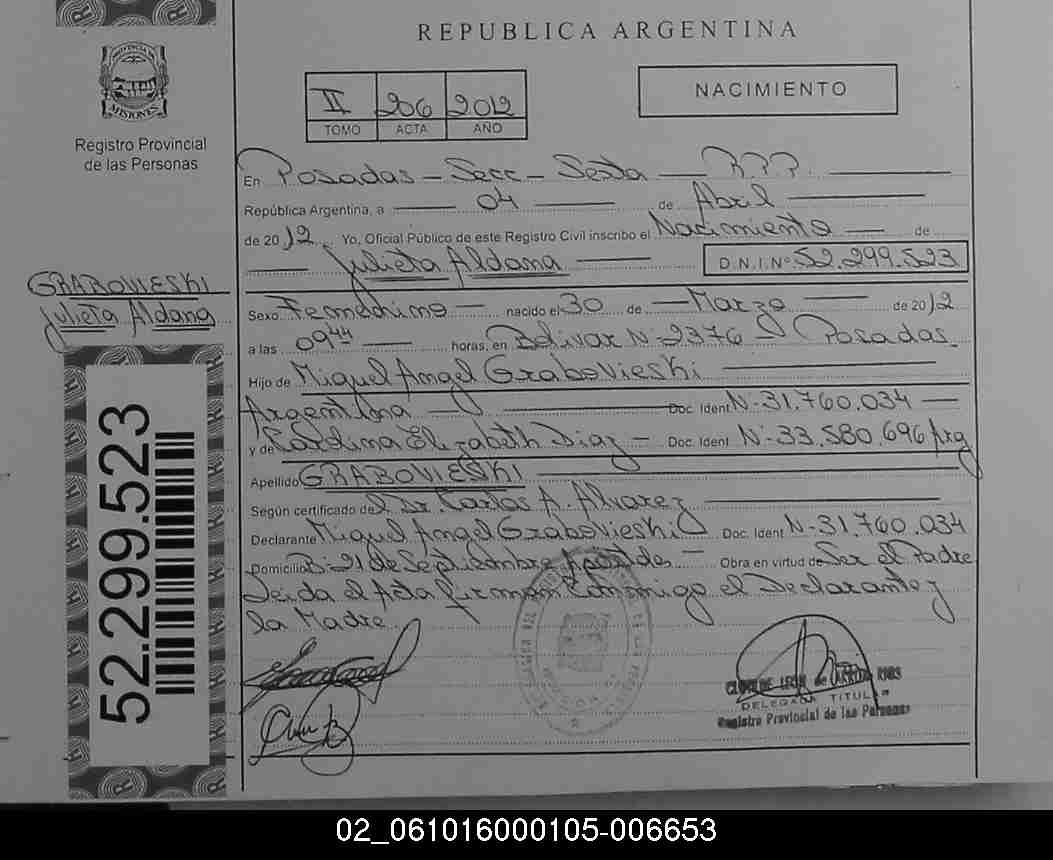 REPUBLICA ARGENTINA
PROVINCIA DE
MISIONES
Registro Provincial
de las Personas
II 206 2012
TOMO ACTA AÑO
NACIMIENTO
En Posadas - Secc - Sexta — R.P.P. —
República Argentina, a — 04 — de Abril —
de 2012. Yo, Oficial Público de este Registro Civil inscribo el Nacimiento — de
— Julieta Aldana — D.N.I.Nº 52.299.523
GRABOVIESKI
Julieta Aldana
Sexo Femenino — nacido el 30 de — Marzo — de 2012
a las 09:44 — horas, en Bolivar Nº 2376 Posadas.
Hijo de Miguel Angel Grabovieski —
Argentina — Doc. Ident Nº 31.760.034 —
y de Carolina Elizabeth Diaz — Doc. Ident Nº 33.580.696 Arg
Apellido GRABOVIESKI —
Según certificado del Dr. Carlos A. Alvarez —
Declarante Miguel Angel Grabovieski Doc. Ident Nº 31.760.034
Domicilio B: 21 de Septiembre Apostoles — Obra en virtud de Ser el Padre
Leida el Acta firman Conmigo el Declarante y
la Madre.
52.299.523
DELEGADA TITULAR
Registro Provincial de las Personas
02_061016000105-006653